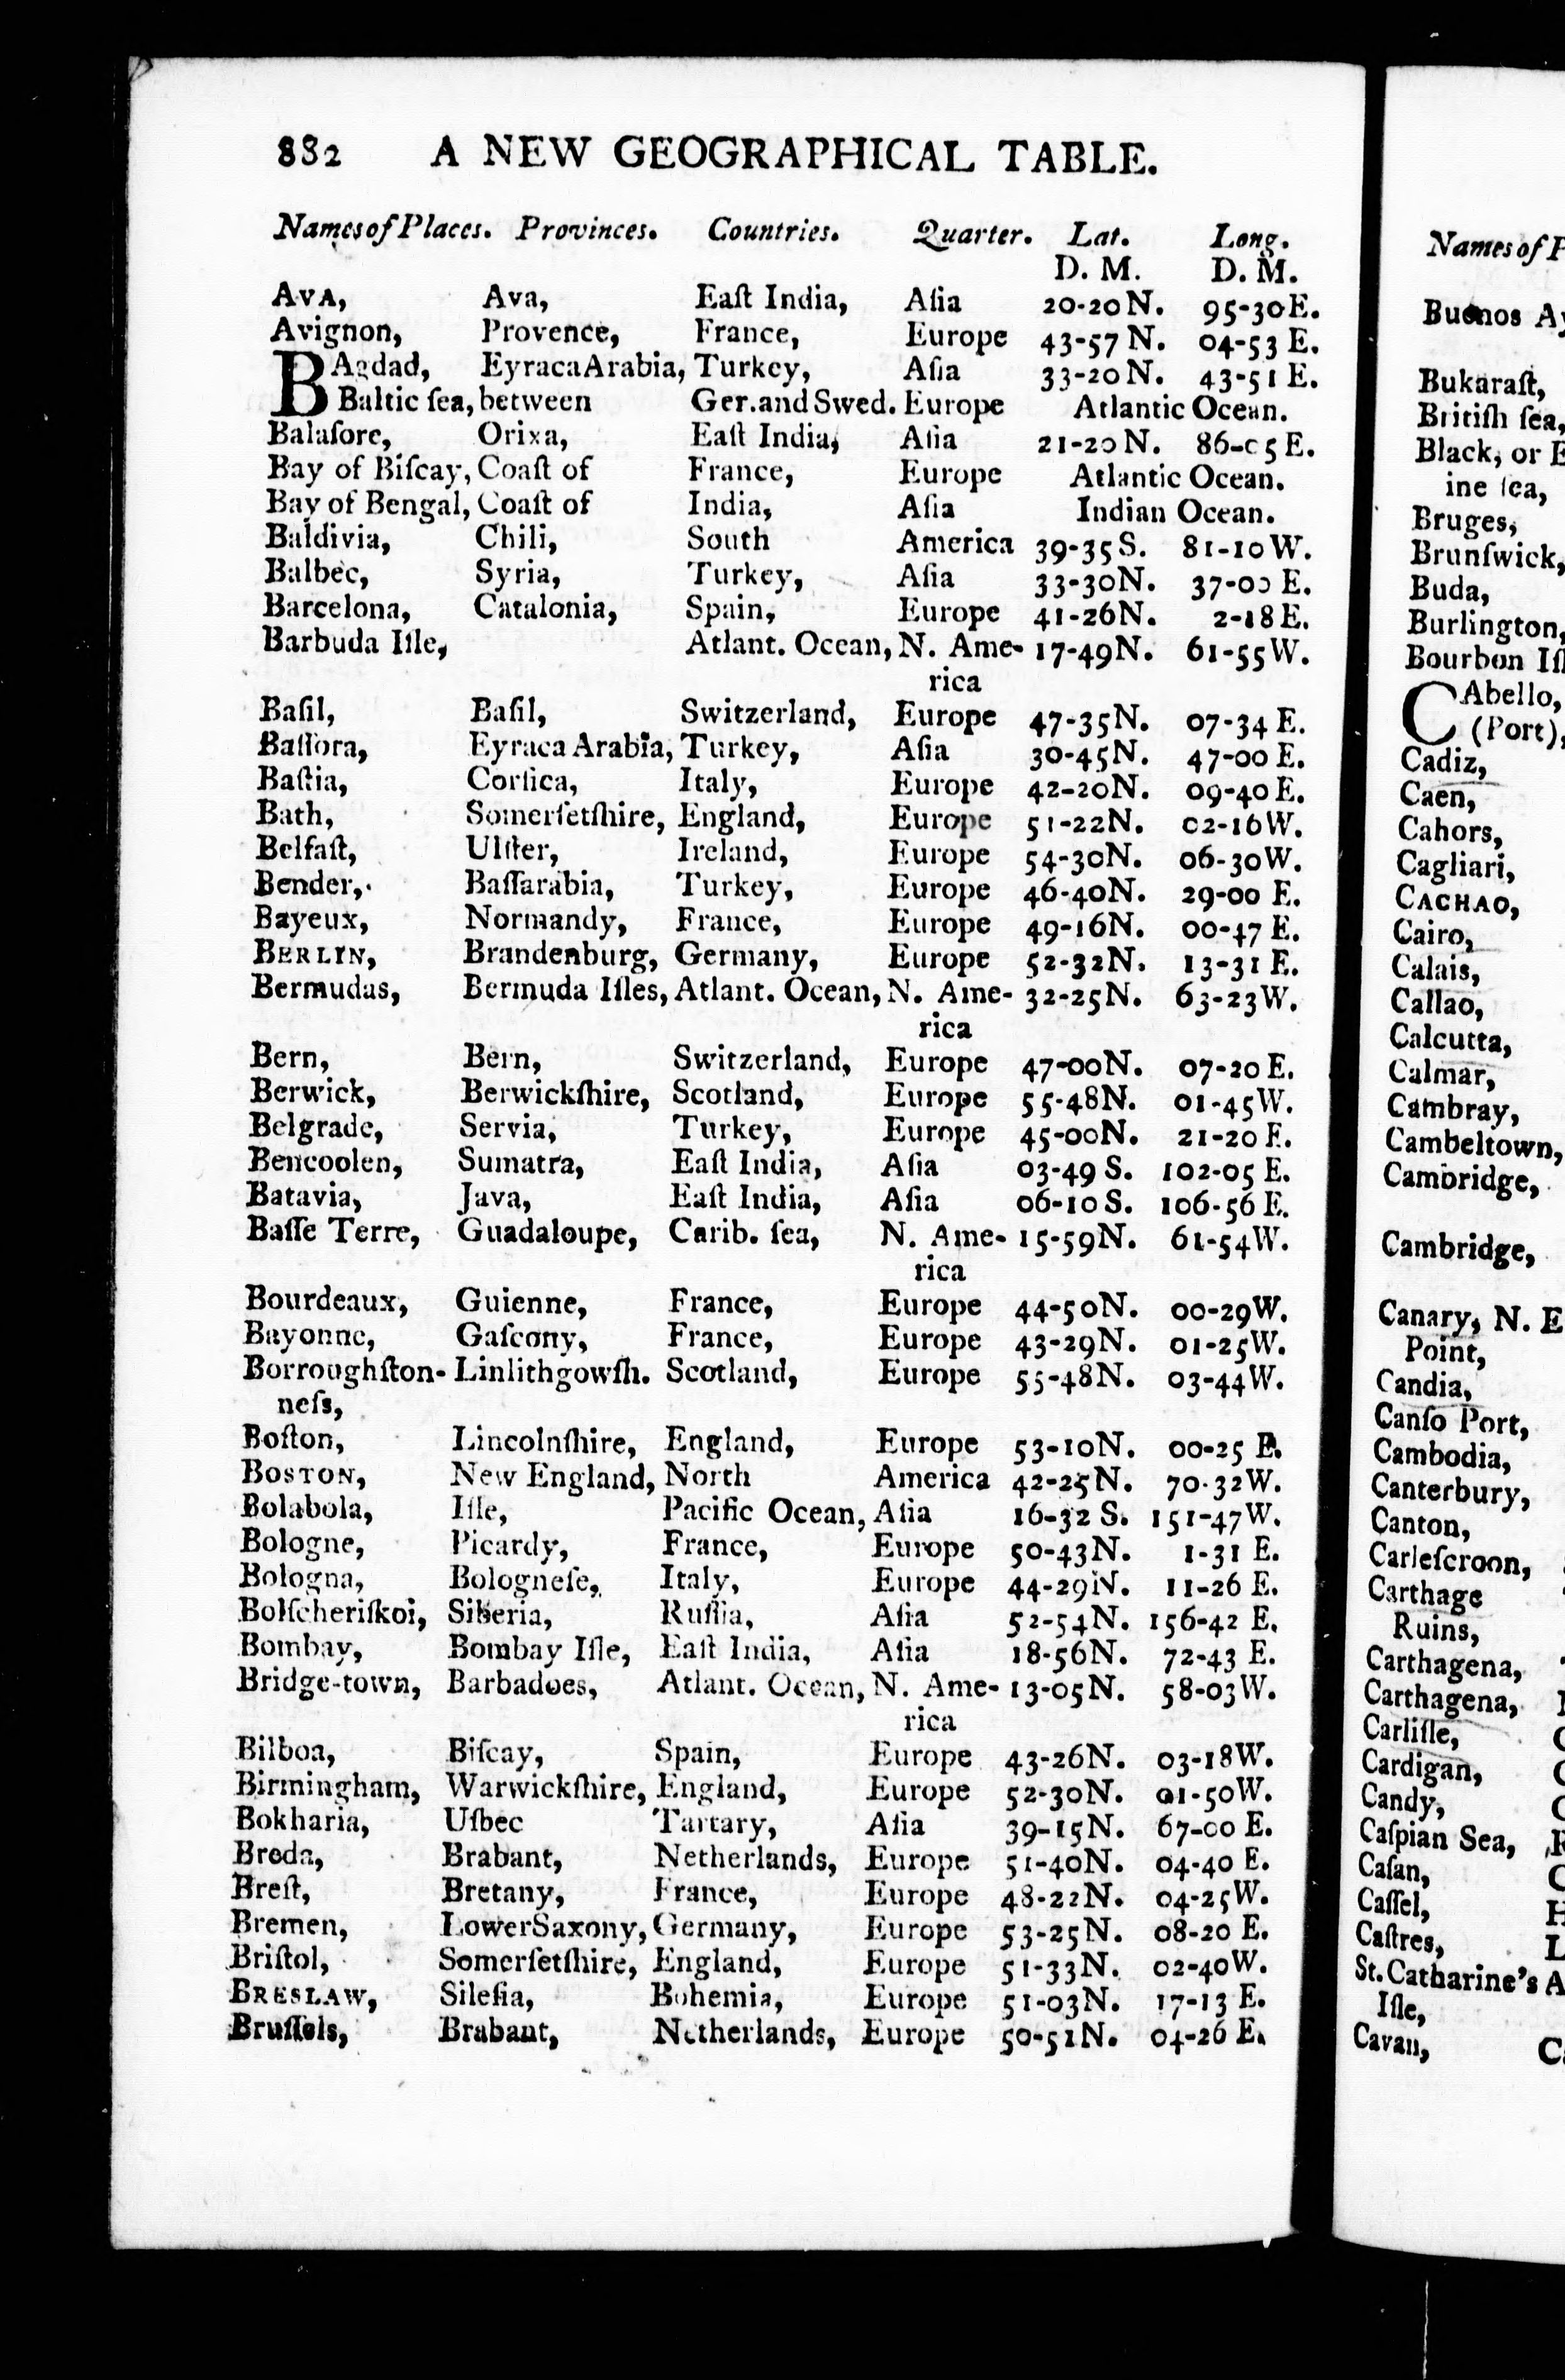 882 A NEW GEOGRAPHICAL TABLE.
Names of Places. Provinces. Countries. Quarter. Lat. Long.
D. M. D. M.
AVA, Ava, Eaſt India, Aſia 20-20 N. 95-30 E.
Avignon, Provence, France, Europe 43-57 N. 04-53 E.
BAgdad, Eyraca Arabia, Turkey, Aſia 33-20 N. 43-51 E.
Baltic ſea, between Ger. and Swed. Europe Atlantic Ocean.
Balaſore, Orixa, Eaſt India, Aſia 21-20 N. 86-05 E.
Bay of Biſcay, Coaſt of France, Europe Atlantic Ocean.
Bay of Bengal, Coaſt of India, Aſia Indian Ocean.
Baldivia, Chili, South America 39-35 S. 81-10 W.
Balbec, Syria, Turkey, Aſia 33-30 N. 37-00 E.
Barcelona, Catalonia, Spain, Europe 41-26 N. 2-18 E.
Barbuda Iſle, Atlant. Ocean, N. Ame- 17-49 N. 61-55 W.
rica
Baſil, Baſil, Switzerland, Europe 47-35 N. 07-34 E.
Baſſora, Eyraca Arabia, Turkey, Aſia 30-45 N. 47-00 E.
Baſtia, Corſica, Italy, Europe 42-20 N. 09-40 E.
Bath, Somerſetſhire, England, Europe 51-22 N. 02-16 W.
Belfaſt, Ulſter, Ireland, Europe 54-30 N. 06-30 W.
Bender, Baſſarabia, Turkey, Europe 46-40 N. 29-00 E.
Bayeux, Normandy, France, Europe 49-16 N. 00-47 E.
BERLIN, Brandenburg, Germany, Europe 52-32 N. 13-31 E.
Bermudas, Bermuda Iſles, Atlant. Ocean, N. Ame- 32-25 N. 63-23 W.
rica
Bern, Bern, Switzerland, Europe 47-00 N. 07-20 E.
Berwick, Berwickſhire, Scotland, Europe 55-48 N. 01-45 W.
Belgrade, Servia, Turkey, Europe 45-00 N. 21-20 E.
Bencoolen, Sumatra, Eaſt India, Aſia 03-49 S. 102-05 E.
Batavia, Java, Eaſt India, Aſia 06-10 S. 106-56 E.
Baſſe Terre, Guadaloupe, Carib. ſea, N. Ame- 15-59 N. 61-54 W.
rica
Bourdeaux, Guienne, France, Europe 44-50 N. 00-29 W.
Bayonne, Gaſcony, France, Europe 43-29 N. 01-25 W.
Borroughſton- Linlithgowſh. Scotland, Europe 55-48 N. 03-44 W.
neſs,
Boſton, Lincolnſhire, England, Europe 53-10 N. 00-25 E.
BOSTON, New England, North America 42-25 N. 70-32 W.
Bolabola, Iſle, Pacific Ocean, Aſia 16-32 S. 151-47 W.
Bologne, Picardy, France, Europe 50-43 N. 1-31 E.
Bologna, Bologneſe, Italy, Europe 44-29 N. 11-26 E.
Bolſcheriſkoi, Siberia, Ruſſia, Aſia 52-54 N. 156-42 E.
Bombay, Bombay Iſle, Eaſt India, Aſia 18-56 N. 72-43 E.
Bridge-town, Barbadoes, Atlant. Ocean, N. Ame- 13-05 N. 58-03 W.
rica
Bilboa, Biſcay, Spain, Europe 43-26 N. 03-18 W.
Birmingham, Warwickſhire, England, Europe 52-30 N. 01-50 W.
Bokharia, Uſbec Tartary, Aſia 39-15 N. 67-00 E.
Breda, Brabant, Netherlands, Europe 51-40 N. 04-40 E.
Breſt, Bretany, France, Europe 48-22 N. 04-25 W.
Bremen, Lower Saxony, Germany, Europe 53-25 N. 08-20 E.
Briſtol, Somerſetſhire, England, Europe 51-33 N. 02-40 W.
BRESLAW, Sileſia, Bohemia, Europe 51-03 N. 17-13 E.
Bruſſels, Brabant, Netherlands, Europe 50-51 N. 04-26 E.
Names of
Buenos
Bukaraſt,
Britiſh ſea,
Black, or
ine ſea,
Bruges,
Brunſwick,
Buda,
Burlington,
Bourbon
CAbello,
(Port),
Cadiz,
Caen,
Cahors,
Cagliari,
CACHAO,
Cairo,
Calais,
Callao,
Calcutta,
Calmar,
Cambray,
Cambeltown,
Cambridge,
Cambridge,
Canary, N. E
Point,
Candia,
Canſo Port,
Cambodia,
Canterbury,
Canton,
Carleſcroon,
Carthage
Ruins,
Carthagena,
Carthagena,
Carliſle,
Cardigan,
Candy,
Caſpian Sea,
Caſan,
Caſſel,
Caſtres,
St. Catharine's
Iſle,
Cavan,